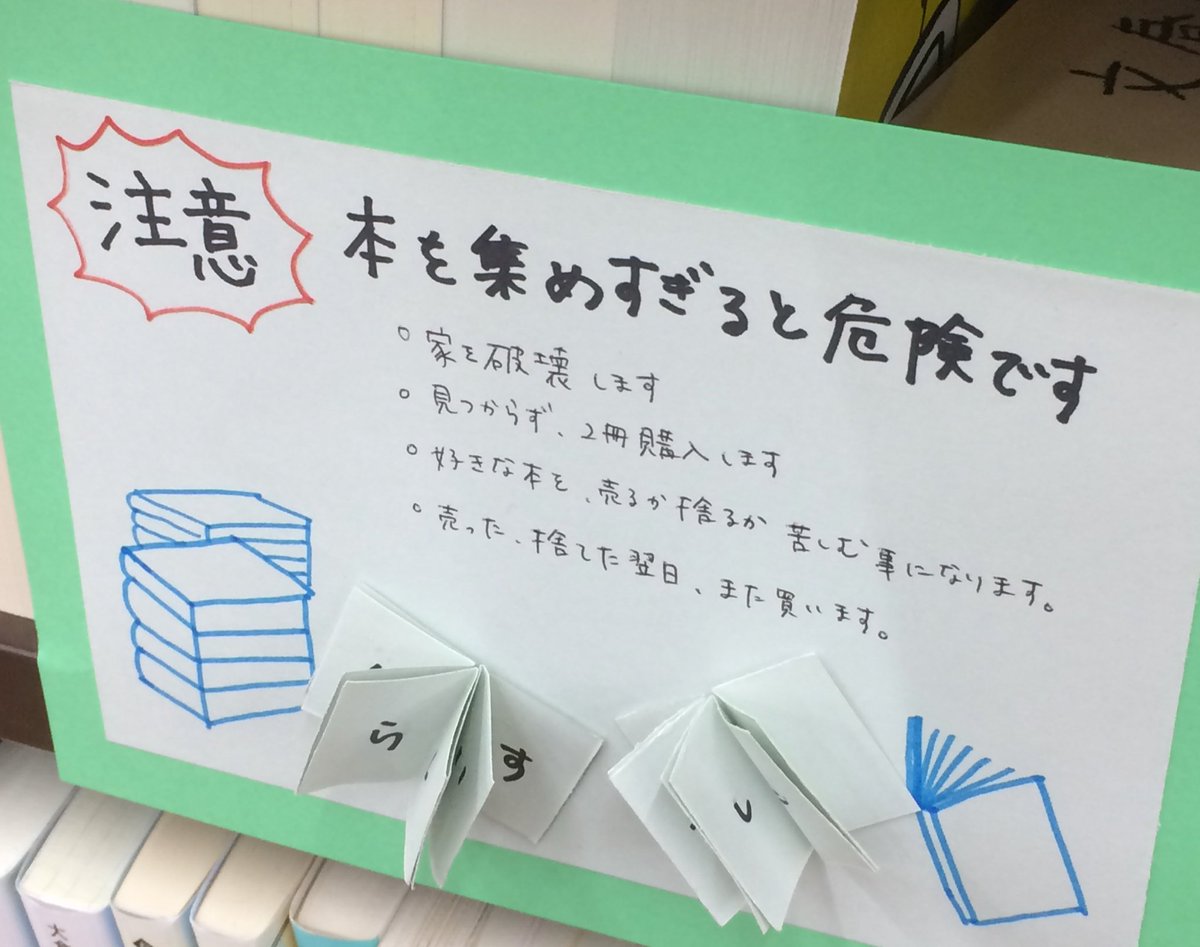 注意
本を集めすぎると危険です
○ 家を破壊します
○ 見つからず、2冊購入します
○ 好きな本を、売るか捨るか 苦しむ事になります。
○ 売った、捨てた翌日、また買います。
ら
す
い